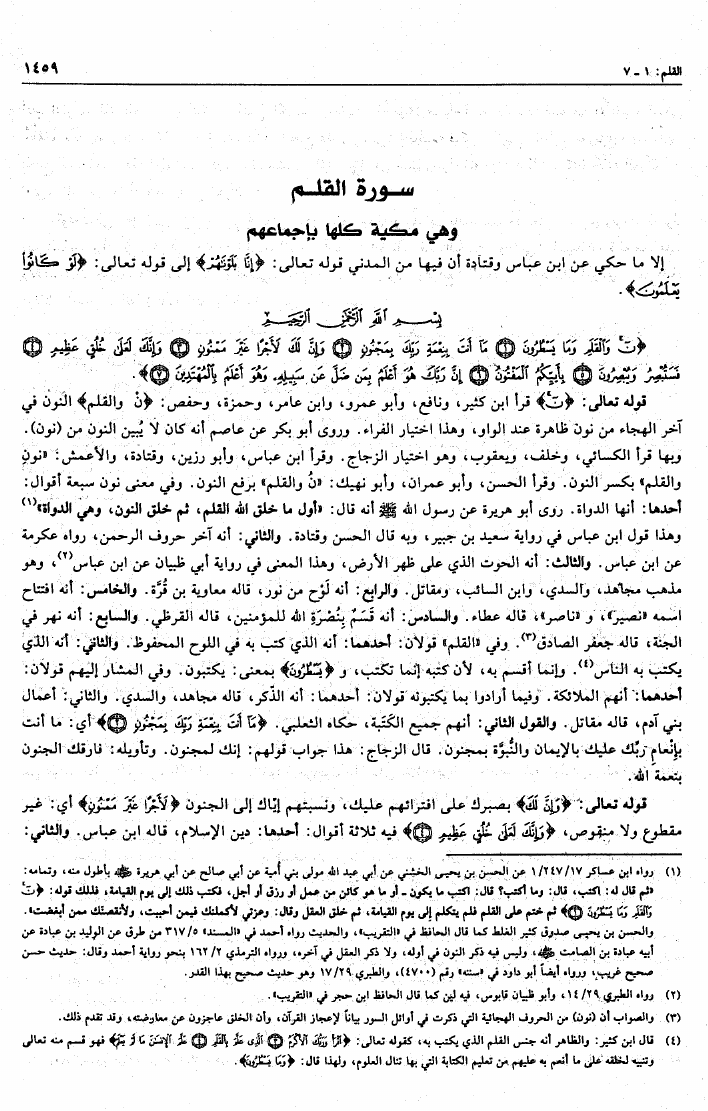 القلم: ١ ـ ٧
١٤٥٩
سـورة القلـم
وهي مكية كلها بإجماعهم
إلا ما حكي عن ابن عباس وقتادة أن فيها من المدني قوله تعالى: ﴿إِنَّا بَلَوْنَهُمْ﴾ إلى قوله تعالى: ﴿لَوْ كَانُوا
يَعْلَمُونَ﴾.
بِسْمِ اللَّهِ الرَّحْمَنِ الرَّحِيمِ
﴿نٓ وَالْقَلَمِ وَمَا يَسْطُرُونَ ۝١ مَا أَنتَ بِنِعْمَةِ رَبِّكَ بِمَجْنُونٍ ۝٢ وَإِنَّ لَكَ لَأَجْرًا غَيْرَ مَمْنُونٍ ۝٣ وَإِنَّكَ لَعَلَى خُلُقٍ عَظِيمٍ ۝٤
فَسَتُبْصِرُ وَيُبْصِرُونَ ۝٥ بِأَييِّكُمُ الْمَفْتُونُ ۝٦ إِنَّ رَبَّكَ هُوَ أَعْلَمُ بِمَن ضَلَّ عَن سَبِيلِهِ وَهُوَ أَعْلَمُ بِالْمُهْتَدِينَ ۝٧﴾.
قوله تعالى: ﴿نٓ﴾ قرأ ابن كثير، ونافع، وأبو عمرو، وابن عامر، وحمزة، وحفص: ﴿نْ والقلم﴾ النون في
آخر الهجاء من نون ظاهرة عند الواو، وهذا اختيار الفراء. وروى أبو بكر عن عاصم أنه كان لا يُبين النون من (نون).
وبها قرأ الكسائي، وخلف، ويعقوب، وهو اختيار الزجاج. وقرأ ابن عباس، وأبو رزين، وقتادة، والأعمش: «نونِ
والقلم» بكسر النون. وقرأ الحسن، وأبو عمران، وأبو نهيك: «نُ والقلم» برفع النون. وفي معنى نون سبعة أقوال:
أحدها: أنها الدواة. روى أبو هريرة عن رسول الله ﷺ أنه قال: «أول ما خلق الله القلم، ثم خلق النون، وهي الدواة»(١)
وهذا قول ابن عباس في رواية سعيد بن جبير، وبه قال الحسن وقتادة. والثاني: أنه آخر حروف الرحمن، رواه عكرمة
عن ابن عباس. والثالث: أنه الحوت الذي على ظهر الأرض، وهذا المعنى في رواية أبي ظبيان عن ابن عباس(٢)، وهو
مذهب مجاهد، والسدي، وابن السائب، ومقاتل. والرابع: أنه لَوْح من نور، قاله معاوية بن قُرَّة. والخامس: أنه افتتاح
اسمه «نصير»، و «ناصر»، قاله عطاء. والسادس: أنه قَسَمٌ بِنُصْرَةِ الله للمؤمنين، قاله القرظي. والسابع: أنه نهر في
الجنة، قاله جعفر الصادق(٣). وفي «القلم» قولان: أحدهما: أنه الذي كتب به في اللوح المحفوظ. والثاني: أنه الذي
يكتب به الناس(٤). وإنما أقسم به، لأن كتبه إنما تكتب، و ﴿يَسْطُرُونَ﴾ بمعنى: يكتبون. وفي المشار إليهم قولان:
أحدهما: أنهم الملائكة. وفيما أرادوا بما يكتبونه قولان: أحدهما: أنه الذِّكر، قاله مجاهد، والسدي. والثاني: أعمال
بني آدم، قاله مقاتل. والقول الثاني: أنهم جميع الكَتَبة، حكاه الثعلبي. ﴿مَا أَنتَ بِنِعْمَةِ رَبِّكَ بِمَجْنُونٍ ۝٢﴾ أي: ما أنت
بإنعامِ ربِّك عليك بالإيمان والنُّبوَّة بمجنون. قال الزجاج: هذا جواب قولهم: إنك لمجنون. وتأويله: فارقك الجنون
بنعمة الله.
قوله تعالى: ﴿وَإِنَّ لَكَ﴾ بصبرك على افترائهم عليك، ونسبتهم إيّاك إلى الجنون ﴿لَأَجْرًا غَيْرَ مَمْنُونٍ﴾ أي: غير
مقطوع ولا منقوص، ﴿وَإِنَّكَ لَعَلَى خُلُقٍ عَظِيمٍ ۝٤﴾ فيه ثلاثة أقوال: أحدها: دين الإسلام، قاله ابن عباس. والثاني:
(١) رواه ابن عساكر ١/٢٤٧/١٧ عن الحسن بن يحيى الخشني عن أبي عبد الله مولى بني أمية عن أبي صالح عن أبي هريرة ﷺ بأطول منه، وتمامه:
«ثم قال له: اكتب، قال: وما أكتب؟ قال: اكتب ما يكون ـ أو ما هو كائن من عمل أو رزق أو أجل، فكتب ذلك إلى يوم القيامة، فذلك قوله: ﴿نٓ
وَالْقَلَمِ وَمَا يَسْطُرُونَ ۝١﴾ ثم ختم على القلم فلم يتكلم إلى يوم القيامة، ثم خلق العقل وقال: وعزتي لأكملنك فيمن أحببت، ولأنقصنّك ممن أبغضت».
والحسن بن يحيى صدوق كثير الغلط كما قال الحافظ في «التقريب»، والحديث رواه أحمد في «المسند» ٣١٧/٥ من طرق عن الوليد بن عبادة عن
أبيه عبادة بن الصامت ﷺ، وليس فيه ذكر النون في أوله، ولا ذكر العقل في آخره، ورواه الترمذي ١٦٢/٢ بنحو رواية أحمد وقال: حديث حسن
صحيح غريب، ورواه أيضاً أبو داود في «سننه» رقم (٤٧٠٠)، والطبري ١٧/٢٩ وهو حديث صحيح بهذا القدر.
(٢) رواه الطبري ١٤/٢٩، وأبو ظبيان قابوس، فيه لين كما قال الحافظ ابن حجر في «التقريب».
(٣) والصواب أن (نون) من الحروف الهجائية التي ذكرت في أوائل السور بياناً لإعجاز القرآن، وأن الخلق عاجزون عن معارضته، وقد تقدم ذلك.
(٤) قال ابن كثير: والظاهر أنه جنس القلم الذي يكتب به، كقوله تعالى: ﴿اقْرَأْ وَرَبُّكَ الْأَكْرَمُ ۝٣ الَّذِي عَلَّمَ بِالْقَلَمِ ۝٤ عَلَّمَ الْإِنسَنَ مَا لَمْ يَعْلَمْ﴾ فهو قسم منه تعالى
وتنبيه لخلقه على ما أنعم به عليهم من تعليم الكتابة التي بها تنال العلوم، ولهذا قال: ﴿وَمَا يَسْطُرُونَ﴾.